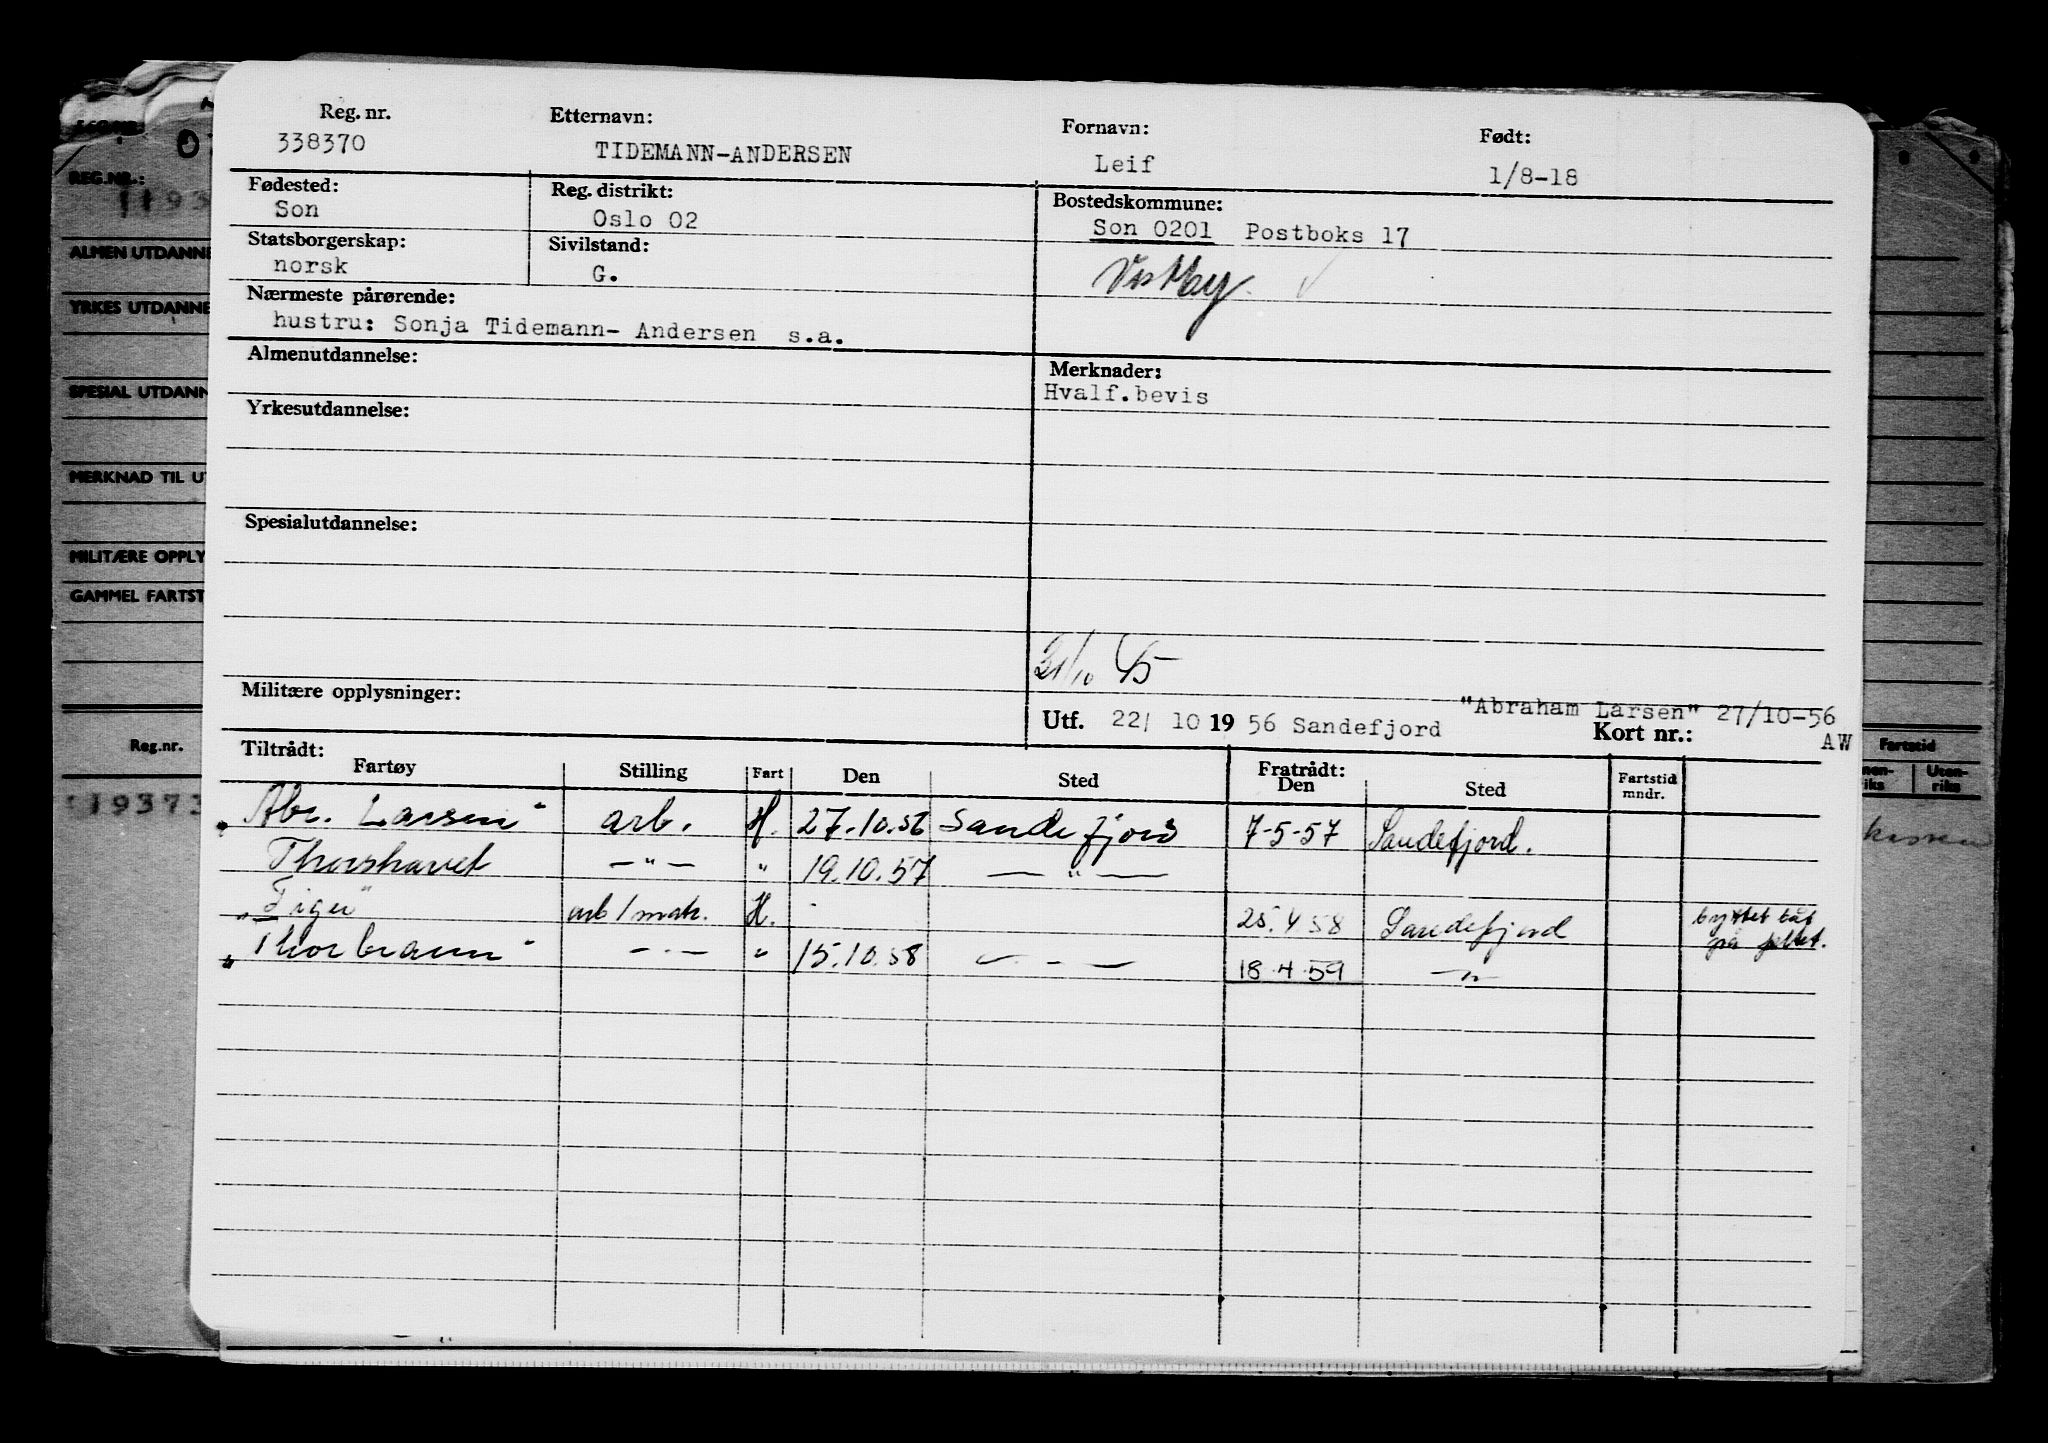 Reg. nr. Etternavn: Fornavn: Født:
338370 TIDEMANN-ANDERSEN Leif 1/8-18
Fødested: Reg. distrikt: Bostedskommune:
Son Oslo 02 Son 0201 Postboks 17
Statsborgerskap: Sivilstand:
norsk G. Vestby.
Nærmeste pårørende:
hustru: Sonja Tidemann- Andersen s.a.
Almenutdannelse: Merknader:
Hvalf.bevis
Yrkesutdannelse:
Spesialutdannelse:
31/10 45
Militære opplysninger:
"Abraham Larsen" 27/10-56
Utf. 22/ 10 19 56 Sandefjord Kort nr.: AW
Tiltrådt: Fratrådt:
Fartøy Stilling Fart Den Sted Den Sted Fartstid mndr.
"Abr. Larsen" arb. H. 27.10.56 Sandefjord 7-5-57 Sandefjord.
Thorshavet —"— " 19.10.57 —"—
"Tiger" arb/matr. H. 25.4 58 Sandefjord byttet båt på feltet.
"Thorbrann" —"— " 15.10.58 —"— 18.4.59 —"—
REG.NR.:
ALMEN UTDANNE
YRKES UTDANNE
SPESIAL UTDANN
MERKNAD TIL UT
MILITÆRE OPPLY
GAMMEL FARTST
Reg.nr. Fartstid
Uten-
riks
19373